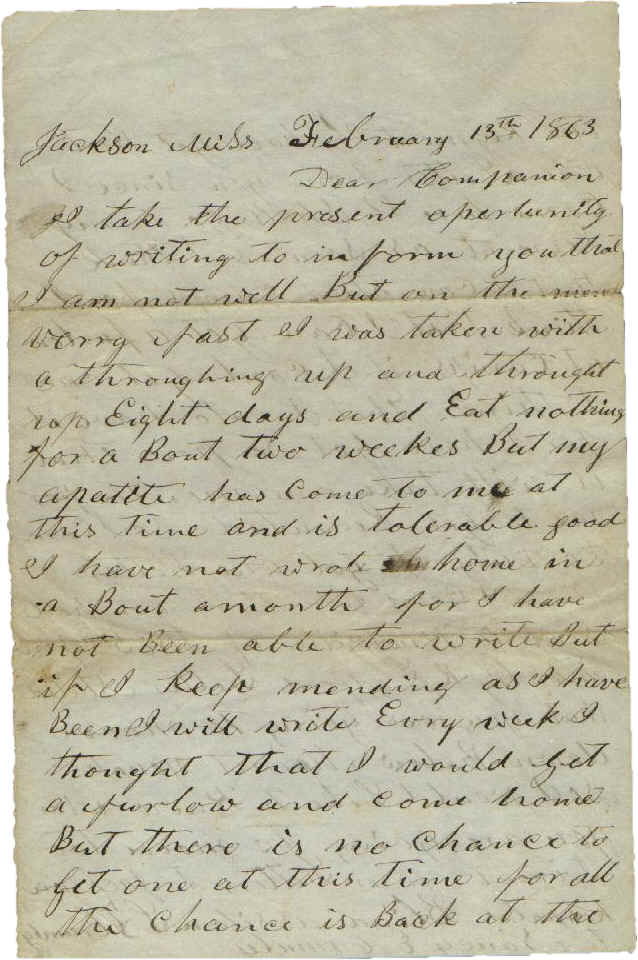 Jackson Miss February 13th 1863
Dear Companion
I take the present opertunity
of writing to inform you that
I am not well But on the mend
verry fast I was taken with
a throughing up and throught
up Eight days and Eat nothing
for a Bout two weekes But my
apatite has Come to me at
this time and is tolerable good
I have not wrote home in
a Bout amonth for I have
not Been able to write But
if I Keep mending as I have
Been I will write Evry week I
thought that I would get
a furlow and come home
But there is no Chance to
get one at this time for all
the Chance is Back at the